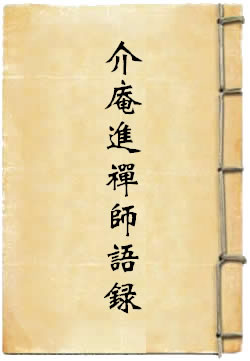 介庵進禪師語録